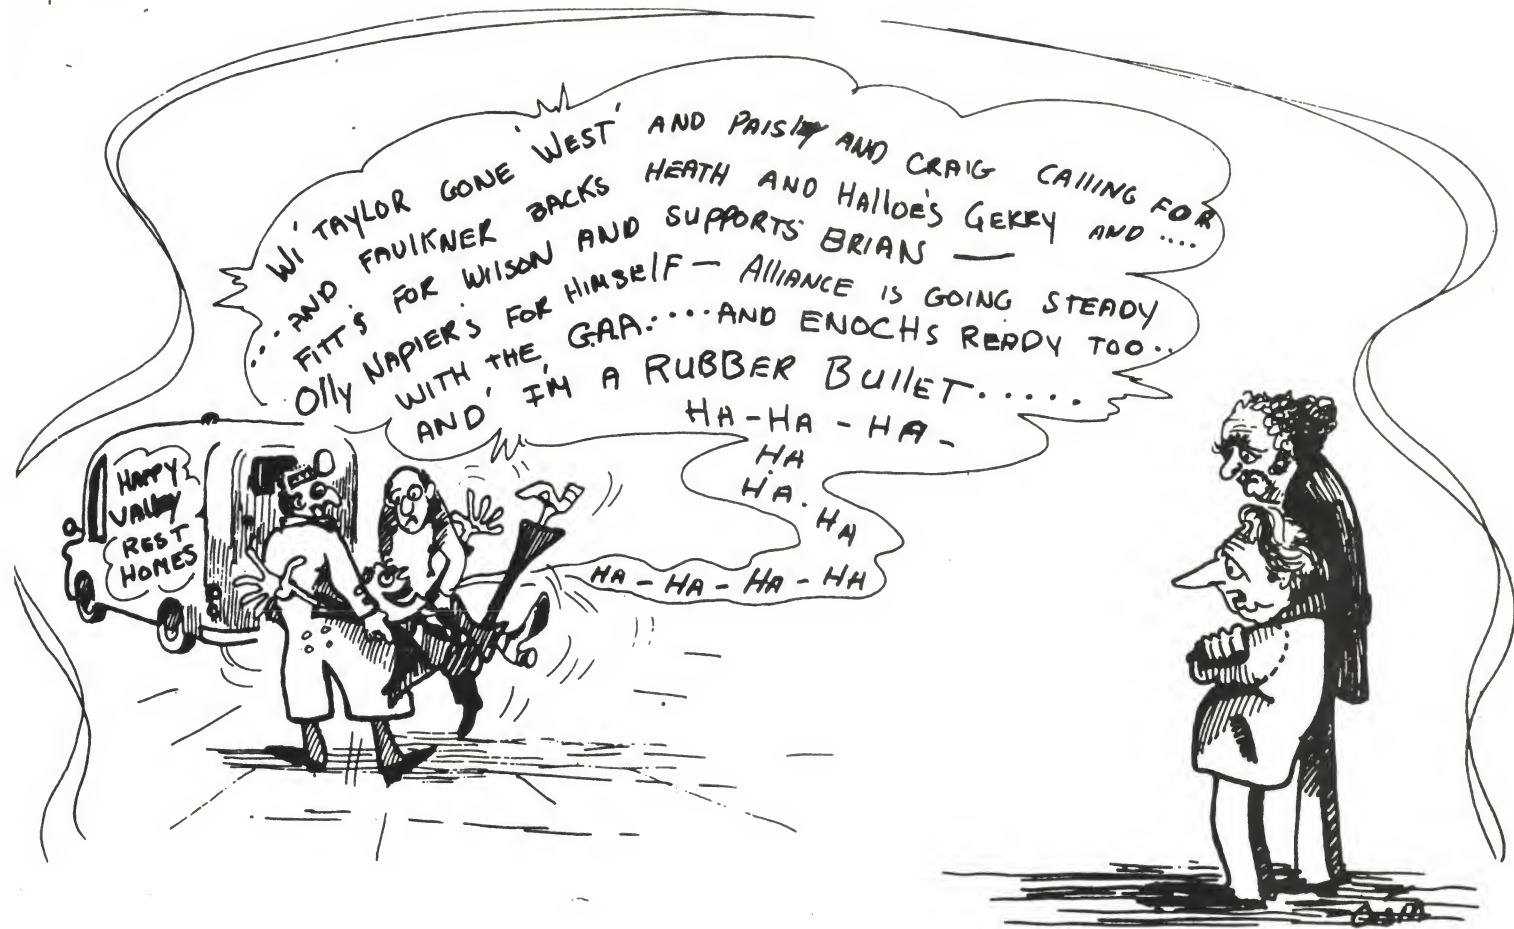 WI' TAYLOR GONE 'WEST' AND PAISLEY AND CRAIG CALLING FOR
...AND FAULKNER BACKS HEATH AND HALLOE'S GERRY AND ....
FITT'S FOR WILSON AND SUPPORTS BRIAN —
OLLY NAPIER'S FOR HIMSELF — ALLIANCE IS GOING STEADY
WITH THE G.A.A.....AND ENOCHS READY TOO..
AND 'I'M A RUBBER BULLET.....
HA-HA-HA-
HA
HA.
HA
HA-HA-HA-HA
HAPPY
VALLEY
REST
HOMES